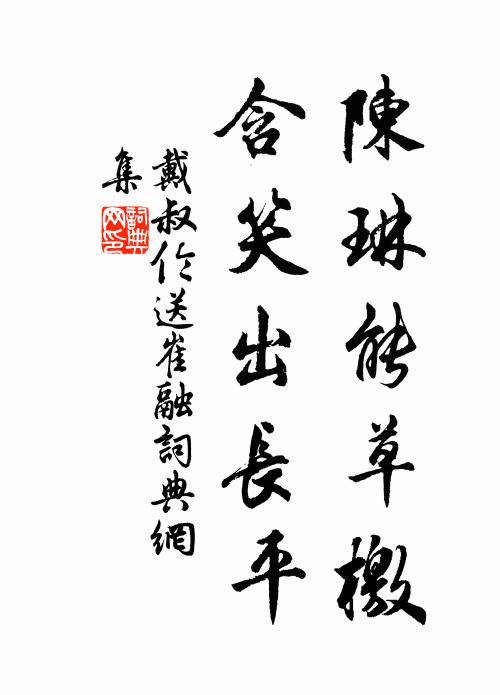 陳琳能草檄
含笑出長平
戴叔伦送崔融詞典網
集
詞典网印